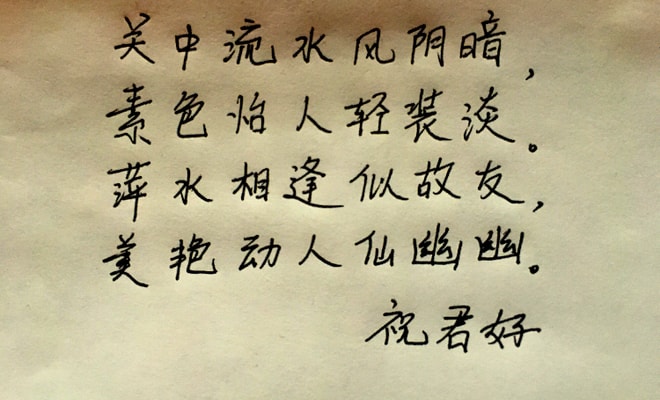 关中流水风阴暗,
素色怡人轻装淡。
萍水相逢似故友,
美艳动人仙幽幽。
祝君好